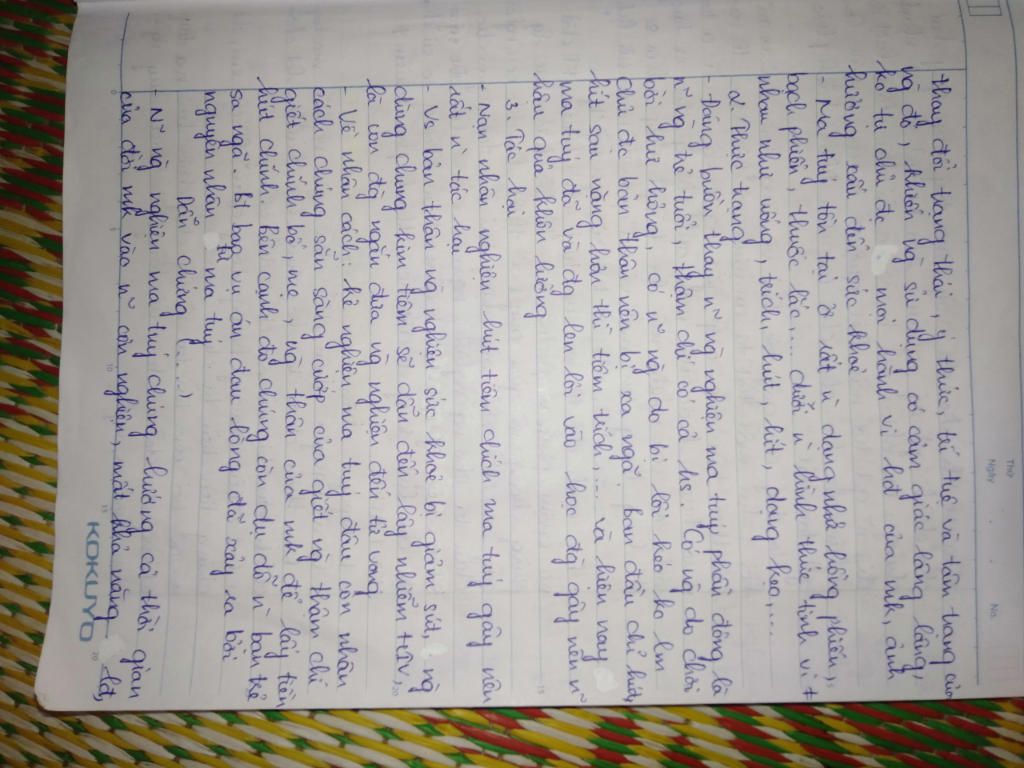 Thứ
Ngày
No.
thay đổi trạng thái, ý thức, trí tuệ và tâm trạng của
ng đó, khiến ng sử dụng có cảm giác lâng lâng,
ko tự chủ đc mọi hành vi hđ của mk, ảnh
hưởng xấu đến sức khoẻ
- Ma tuý tồn tại ở rất n dạng như hồng phiến,
bạch phiến, thuốc lắc,... dưới n hình thức tinh vi ≠
nhau như uống, tiêm, hút, hít, dạng kẹo,...
2. Thực trạng
- Đáng buồn thay n~ ng nghiện ma tuý phần đông là
n~ ng trẻ tuổi, thậm chí có cả hs. Có ng do chơi
bời hư hỏng, có n~ ng do bị lôi kéo ko làm
chủ đc bản thân nên bị xa ngã. ban đầu chỉ hút,
hít sau nặng hơn thì tiêm trích,... và hiện nay
ma tuý đã và đg len lỏi vào học đg gây nên n~
hậu quả khôn lường
3. Tác hại
- Nạn nhân nghiện hút tiêm chích ma tuý gây nên
rất n tác hại
- Vs bản thân ng nghiện sức khoẻ bị giảm sút, ng
dùng chung kim tiêm sẽ dẫn đến lây nhiễm HIV,
là con đg ngắn đưa ng nghiện đến tử vong
- Về nhân cách: kẻ nghiện ma tuý đâu còn nhân
cách chúng sẵn sàng cướp của giết ng thậm chí
giết chính bố, mẹ, ng thân của mk để lấy tiền
hút chính. Bên cạnh đó chúng còn dụ dỗ n bạn trẻ
sa ngã. Bt bao vụ án đau lòng đã xảy ra bởi
nguyên nhân ma tuý
Dẫn chứng (......)
- N~ ng nghiện ma tuý chúng hướng cả thời gian
của đời mk vào n~ cơn nghiện, mất khả năng lđ,
KOKUYO